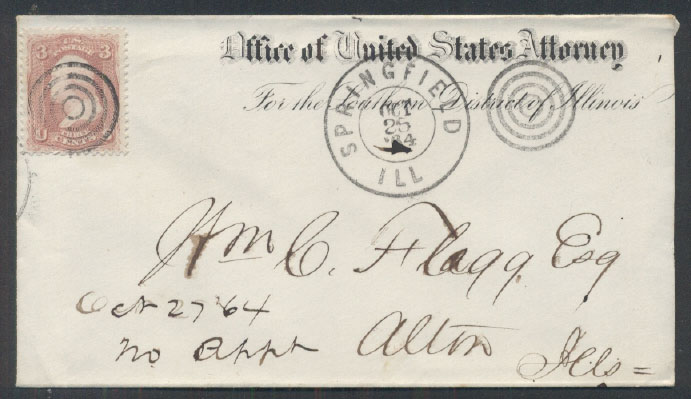 Office of United States Attorney
For the Southern District of Illinois
3 U.S. POSTAGE 3
SPRINGFIELD
OCT
25
'64
ILL
Wm C. Flagg, Esq
Alton
Ills =
Oct 27 64
no appt